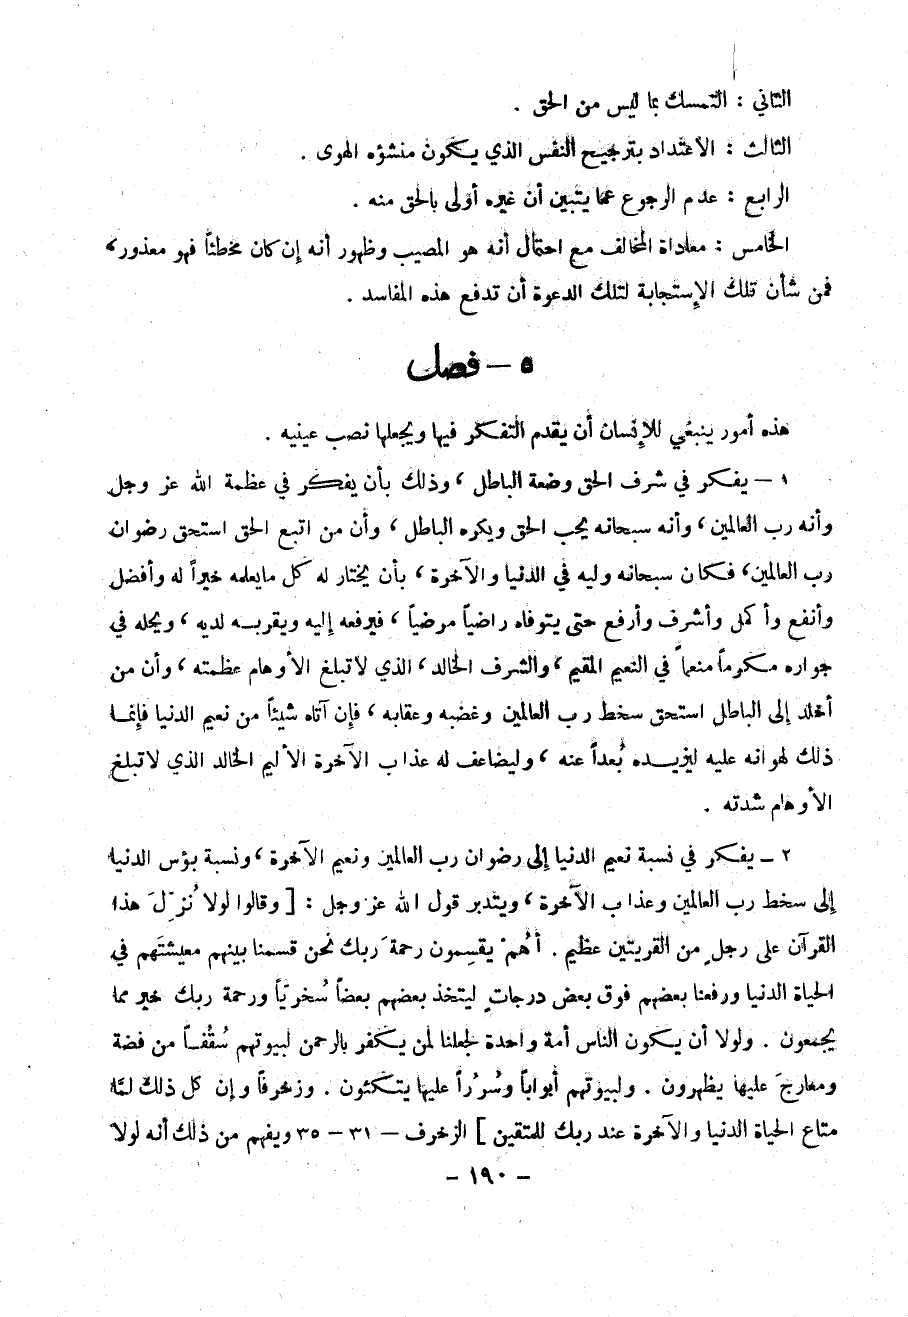 الثاني : التمسك بما ليس من الحق .
الثالث : الاعتداد بترجيح النفس الذي يكون منشؤه الهوى .
الرابع : عدم الرجوع عما يتبين أن غيره أولى بالحق منه .
الخامس : معاداة المخالف مع احتمال أنه هو المصيب وظهور أنه إن كان مخطئاً فهو معذور ،
فمن شأن تلك الإستجابة لتلك الدعوة أن تدفع هذه المفاسد .
٥ – فصل
هذه أمور ينبغي للإنسان أن يقدم التفكر فيها ويجعلها نصب عينيه .
١ – يفكر في شرف الحق وضعة الباطل ، وذلك بأن يفكر في عظمة الله عز وجل
وأنه رب العالمين ، وأنه سبحانه يحب الحق ويكره الباطل ، وأن من اتبع الحق استحق رضوان
رب العالمين ، فكان سبحانه وليه في الدنيا والآخرة ، بأن يختار له كل مايعلمه خيراً له وأفضل
وأنفع وأكمل وأشرف وأرفع حتى يتوفاه راضياً مرضياً ، فيرفعه إليه ويقربه لديه ، ويحله في
جواره مكرماً منعماً في النعيم المقيم ، والشرف الخالد ، الذي لا تبلغ الأوهام عظمته ، وأن من
أخلد إلى الباطل استحق سخط رب العالمين وغضبه وعقابه ، فإن آتاه شيئاً من نعيم الدنيا فإنما
ذلك لهوانه عليه ليزيده بُعداً عنه ، وليضاعف له عذاب الآخرة الأليم الخالد الذي لا تبلغ
الأوهام شدته .
٢ – يفكر في نسبة نعيم الدنيا إلى رضوان رب العالمين ونعيم الآخرة ، ونسبة بؤس الدنيا
إلى سخط رب العالمين وعذاب الآخرة ، ويتدبر قول الله عز وجل : [ وقالوا لولا نُزِّلَ هذا
القرآن على رجلٍ من القريتين عظيم . أهُمْ يقسِمون رحمةَ ربك نحن قسمنا بينهم معيشتَهم في
الحياة الدنيا ورفعنا بعضهم فوق بعض درجاتٍ ليتخذ بعضهم بعضاً سُخريّاً ورحمة ربك خير مما
يجمعون . ولولا أن يكون الناس أمة واحدة لجعلنا لمن يكفر بالرحمن لبيوتهم سُقُفاً من فضة
ومعارجَ عليها يظهرون . ولبيوتهم أبواباً وسُرُراً عليها يتكئون . وزخرفاً وإن كل ذلك لمّا
متاع الحياة الدنيا والآخرة عند ربك للمتقين ] الزخرف – ٣١ – ٣٥ ويفهم من ذلك أنه لولا
– ١٩٠ –